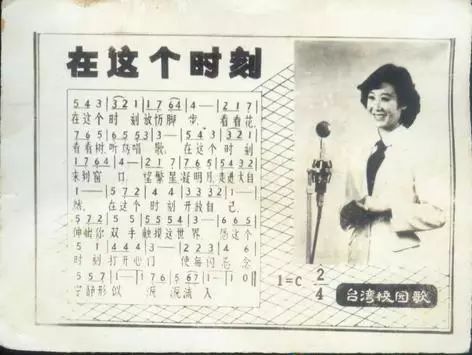 在这个时刻
5 4 3 | 3 2 1 | 1 7 6 4 | 4 — | 2 1 7 |
在这个时 刻 放 伤 脚 步, 看看花,
7 6 5 | 6 5 5 3 | 3 — | 5 4 3 | 3 2 1 |
看看树,听鸟唱 歌, 在这个时 刻
1 7 6 4 | 4 — | 2 1 7 | 7 6 5 | 5 4 3 2 |
来到窗 口, 望繁星,凝明月,走进大自
1 — | 5 7 2 | 4 4 | 3 3 3 2 | 1 — |
然, 在这个时刻 开放自 己,
5 7 2 | 5 5 | 5 5 5 4 | 3 — | 6 6 5 |
伸出你 双手 触摸这世界 在这个
5 1 | 4 4 4 | 3 — | 2 2 3 | 4 6 |
时刻 打开心门 使每份思念
5 5 7 | 1 — | 1 7 6 | 5 6 7 | 1 — | 1 0 ‖
宁静形似 流 流入
1=C 2/4
台湾校园歌